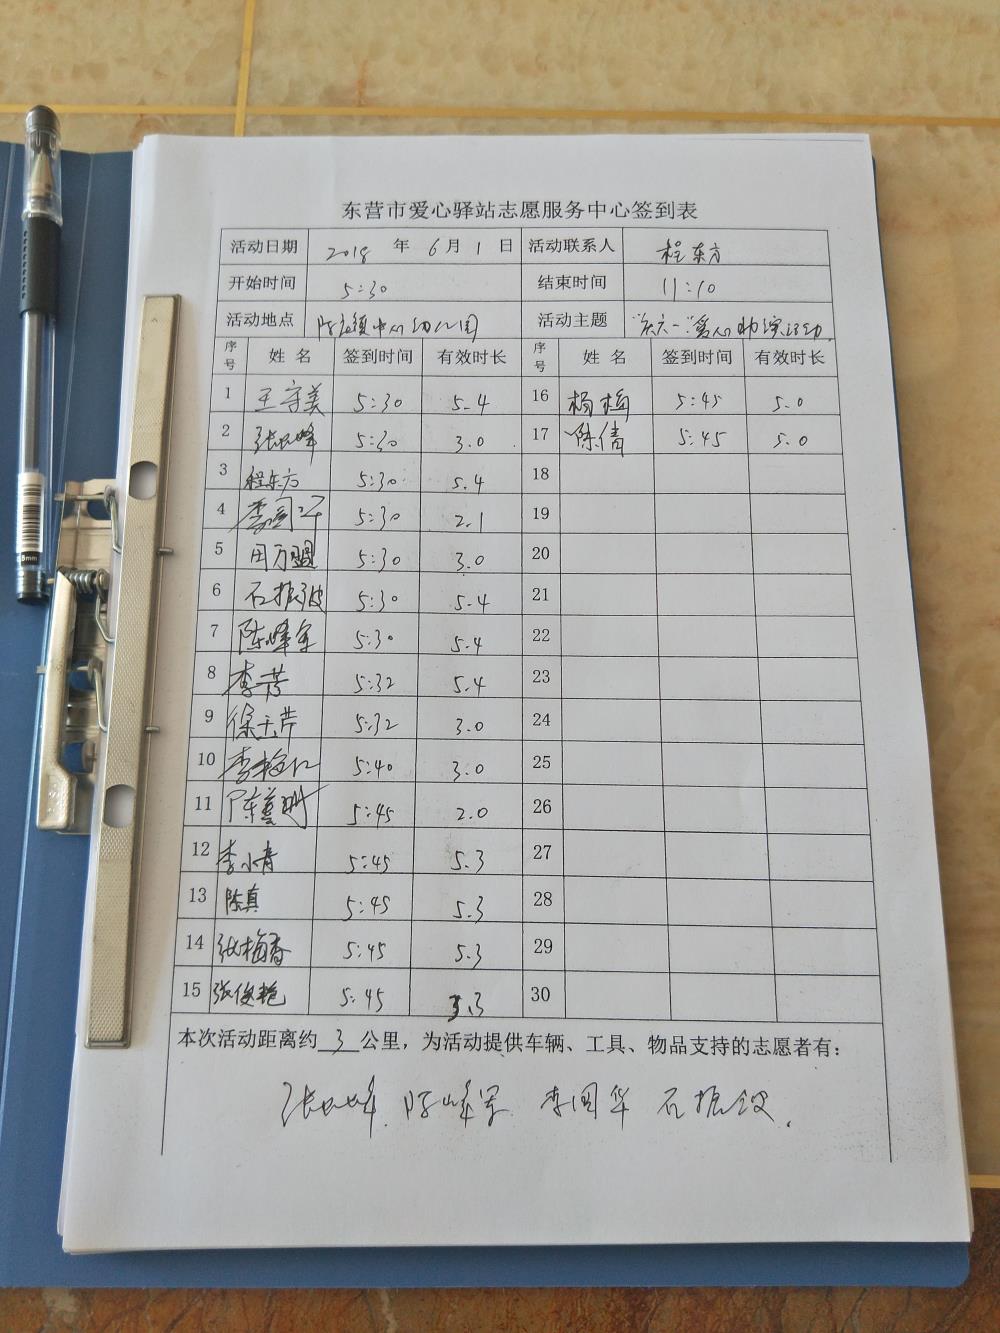 东营市爱心驿站志愿服务中心签到表
活动日期 2018 年 6 月 1 日 活动联系人 程东方
开始时间 5:30 结束时间 11:10
活动地点 中心幼儿园 活动主题 "庆六一"爱心助演活动.
序号 姓名 签到时间 有效时长 序号 姓名 签到时间 有效时长
1 王守美 5:30 5.4 16 杨梅 5:45 5.0
2 5:30 3.0 17 陈倩 5:45 5.0
3 程东方 5:30 5.4 18
4 李国华 5:30 2.1 19
5 田万盟 5:30 3.0 20
6 石振波 5:30 5.4 21
7 陈峰军 5:30 5.4 22
8 李芳 5:32 5.4 23
9 徐玉芹 5:32 3.0 24
10 李梅仁 5:40 3.0 25
11 5:45 2.0 26
12 李小青 5:45 5.3 27
13 陈真 5:45 5.3 28
14 张梅香 5:45 5.3 29
15 张俊艳 5:45 5.3 30
本次活动距离约 3 公里，为活动提供车辆、工具、物品支持的志愿者有：
陈峰军 李国华 石振波.